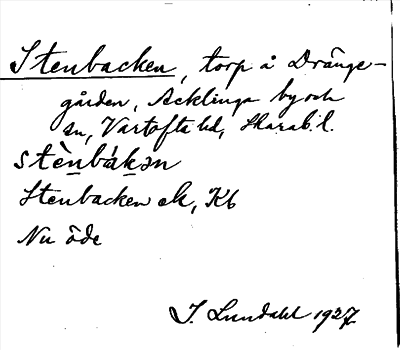 Stenbacken, torp å Dränge-
gården, Acklinga by och
sn, Vartofta hd, Skarab. l.
stènbákən
Stenbacken ek, Kb
Nu öde
J. Lundahl 1927